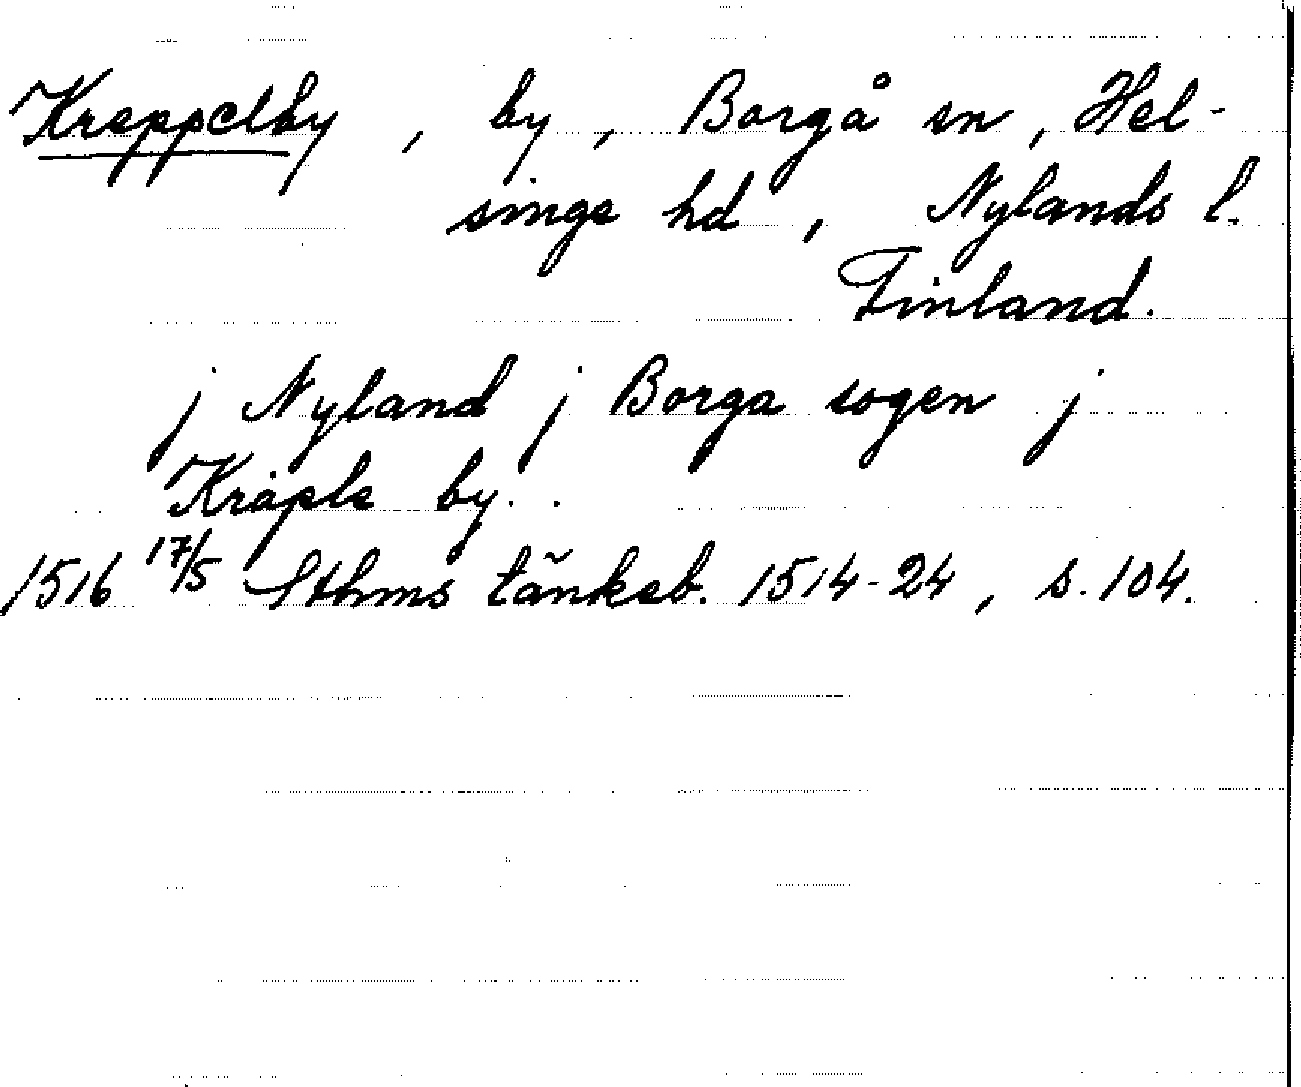 Kreppelby, by, Borgå sn, Hel-
singe hd, Nylands l.
Finland.
j Nyland j Borga sogen j
Kräple by.
1516 17/5 Sthms tänkeb. 1514-24, s. 104.